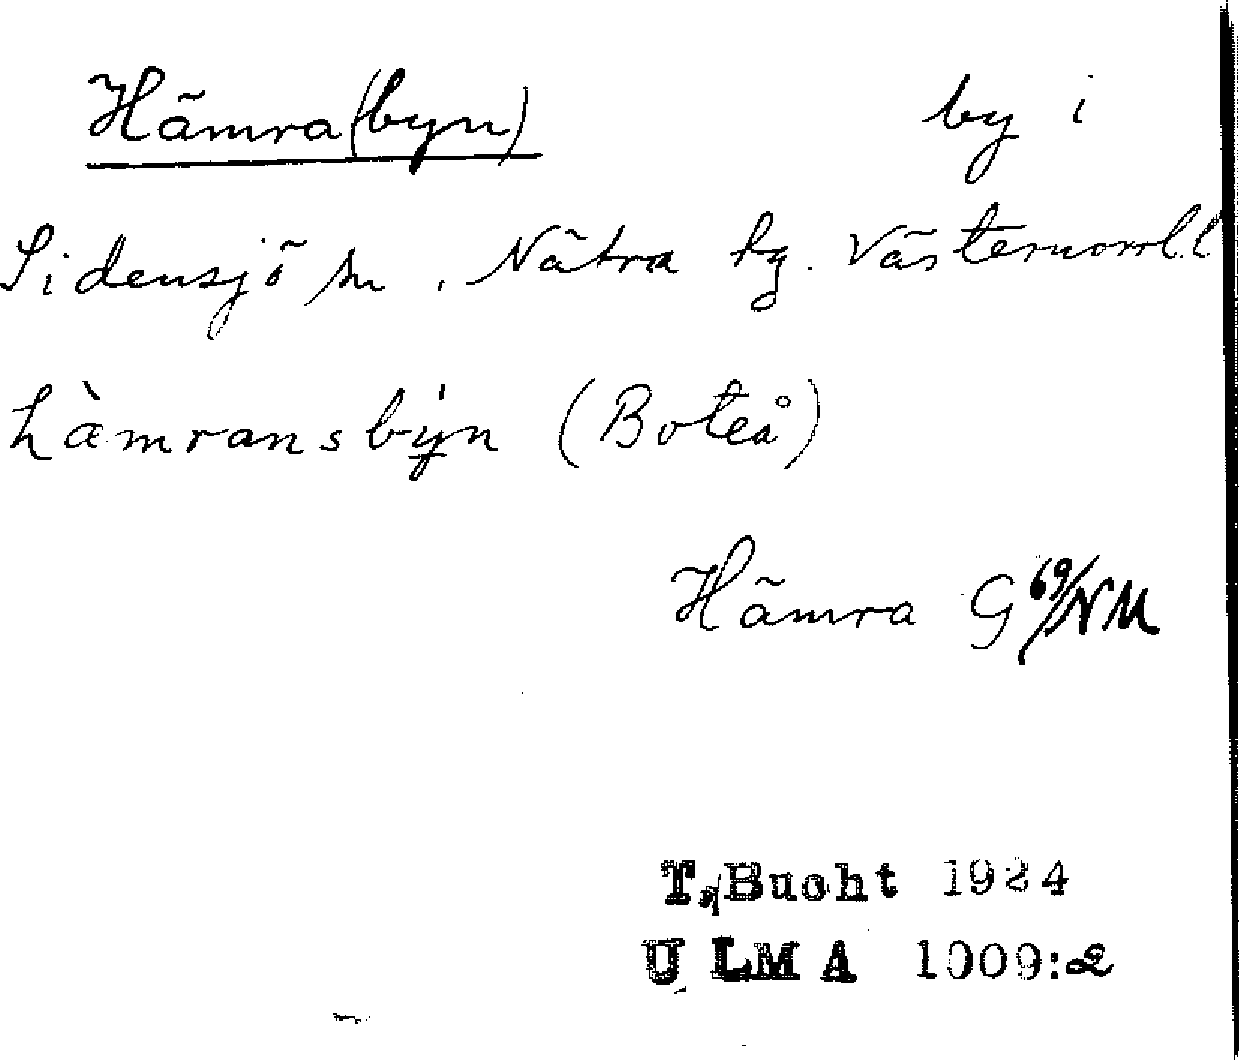 Hämra(byn) by i
Sidensjö sn. Nätra tg. Västernorrl.l
hàmransby̍n (Boteå)
Hämra G 69/NM
T. Bucht 1924
ULMA 1009:2